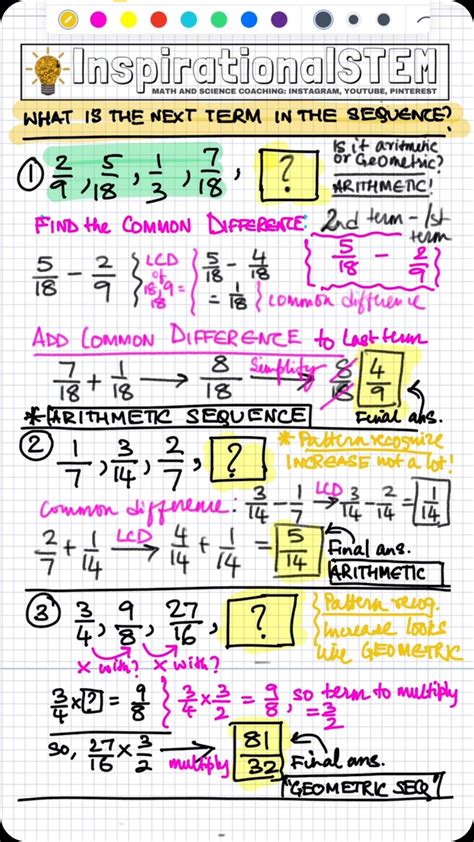 InspirationalSTEM
MATH AND SCIENCE COACHING: INSTAGRAM, YOUTUBE, PINTEREST
WHAT IS THE NEXT TERM IN THE SEQUENCE?
① 2/9, 5/18, 1/3, 7/18, ?
Is it aritmetic or Geometric?
ARITHMETIC!
FIND the COMMON DIFFERENCE: 2nd term - 1st term
5/18 - 2/9 } LCD of 18, 9 = 18 { 5/18 - 4/18 = 1/18 } common difference { 5/18 - 2/9 }
ADD COMMON DIFFERENCE to Last term
7/18 + 1/18 → 8/18 Simplify → 8/18 4/9
Final ans.
* ARITHMETIC SEQUENCE
② 1/7, 3/14, 2/7, ?
* Pattern recognize
INCREASE not a lot!
Common difference: 3/14 - 1/7 LCD → 3/14 - 2/14 = 1/14
2/7 + 1/14 LCD → 4/14 + 1/14 = 5/14 Final ans.
ARITHMETIC
③ 3/4, 9/8, 27/16, ?
Pattern recog.
Increase looks
like GEOMETRIC
x with? x with?
3/4 x ? = 9/8 } 3/4 x 3/2 = 9/8, so term to multiply = 3/2
so, 27/16 x 3/2 → multiply 81/32 Final ans.
"GEOMETRIC SEQ"